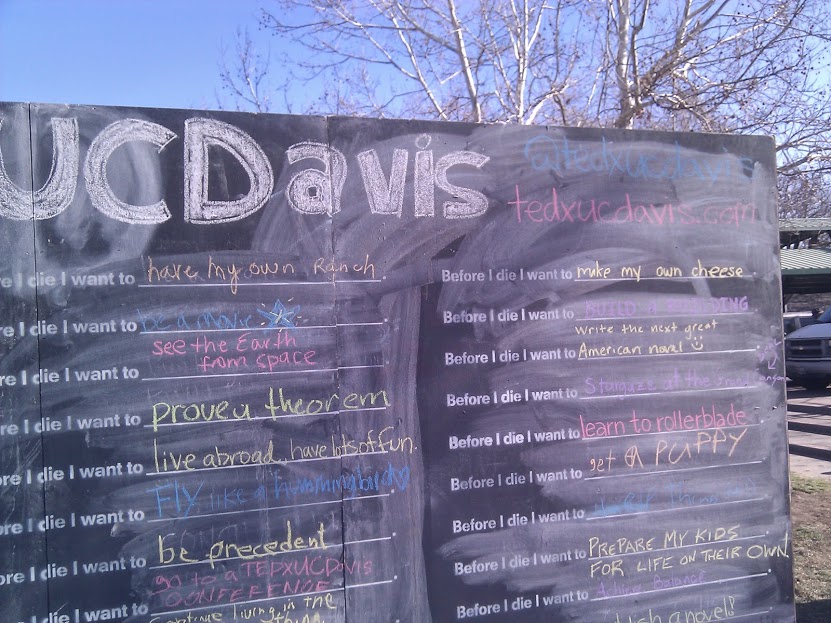 UCDavis
@tedxucdavis
tedxucdavis.com
re I die I want to have my own Ranch.
re I die I want to be a movie
see the Earth
from space
re I die I want to
re I die I want to prove a theorem
re I die I want to live abroad, have lots of fun.
re I die I want to Fly like a hummingbird
ore I die I want to
be precedent
ore I die I want to
go to a TEDXUCDAVIS
CONFERENCE
ore I die I want to
Continue living in the
Before I die I want to make my own cheese.
Before I die I want to BUILD A BUILDING
write the next great
Before I die I want to American novel
Before I die I want to Stargaze at the
Before I die I want to learn to rollerblade.
Before I die I want to get A PUPPY
Before I die I want to
Before I die I want to PREPARE MY KIDS
FOR LIFE ON THEIR OWN
Before I die I want to Achieve Balance
a novel!